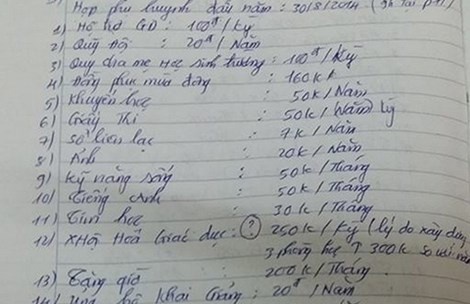 Họp phụ huynh đầu năm: 30/8/2014 (9h tại
1) Hỗ trợ GD : 100đ / Kỳ
2) Quỹ Đội : 20đ / Năm
3) Quỹ cha mẹ Học sinh trường : 100đ / Kỳ
4) Đồng phục mùa đông : 160k
5) Khuyến học : 50k / Năm
6) Giấy Thi : 50k /
7) Sổ liên lạc : 7k / Năm
8) Ảnh : 20k / Năm
9) Kỹ năng sống : 50k / Tháng
10) Tiếng Anh : 50k / Tháng
11) Tin học : 30k / Tháng
12) XHội Hoá Giáo dục : (?) 250k / Kỳ (lý do xây dựng
3 phòng học ↑ 300k so với năm
13) Tăng giờ : 200k / Tháng
14) Ủng hộ Khai Giảng : 20đ / Năm